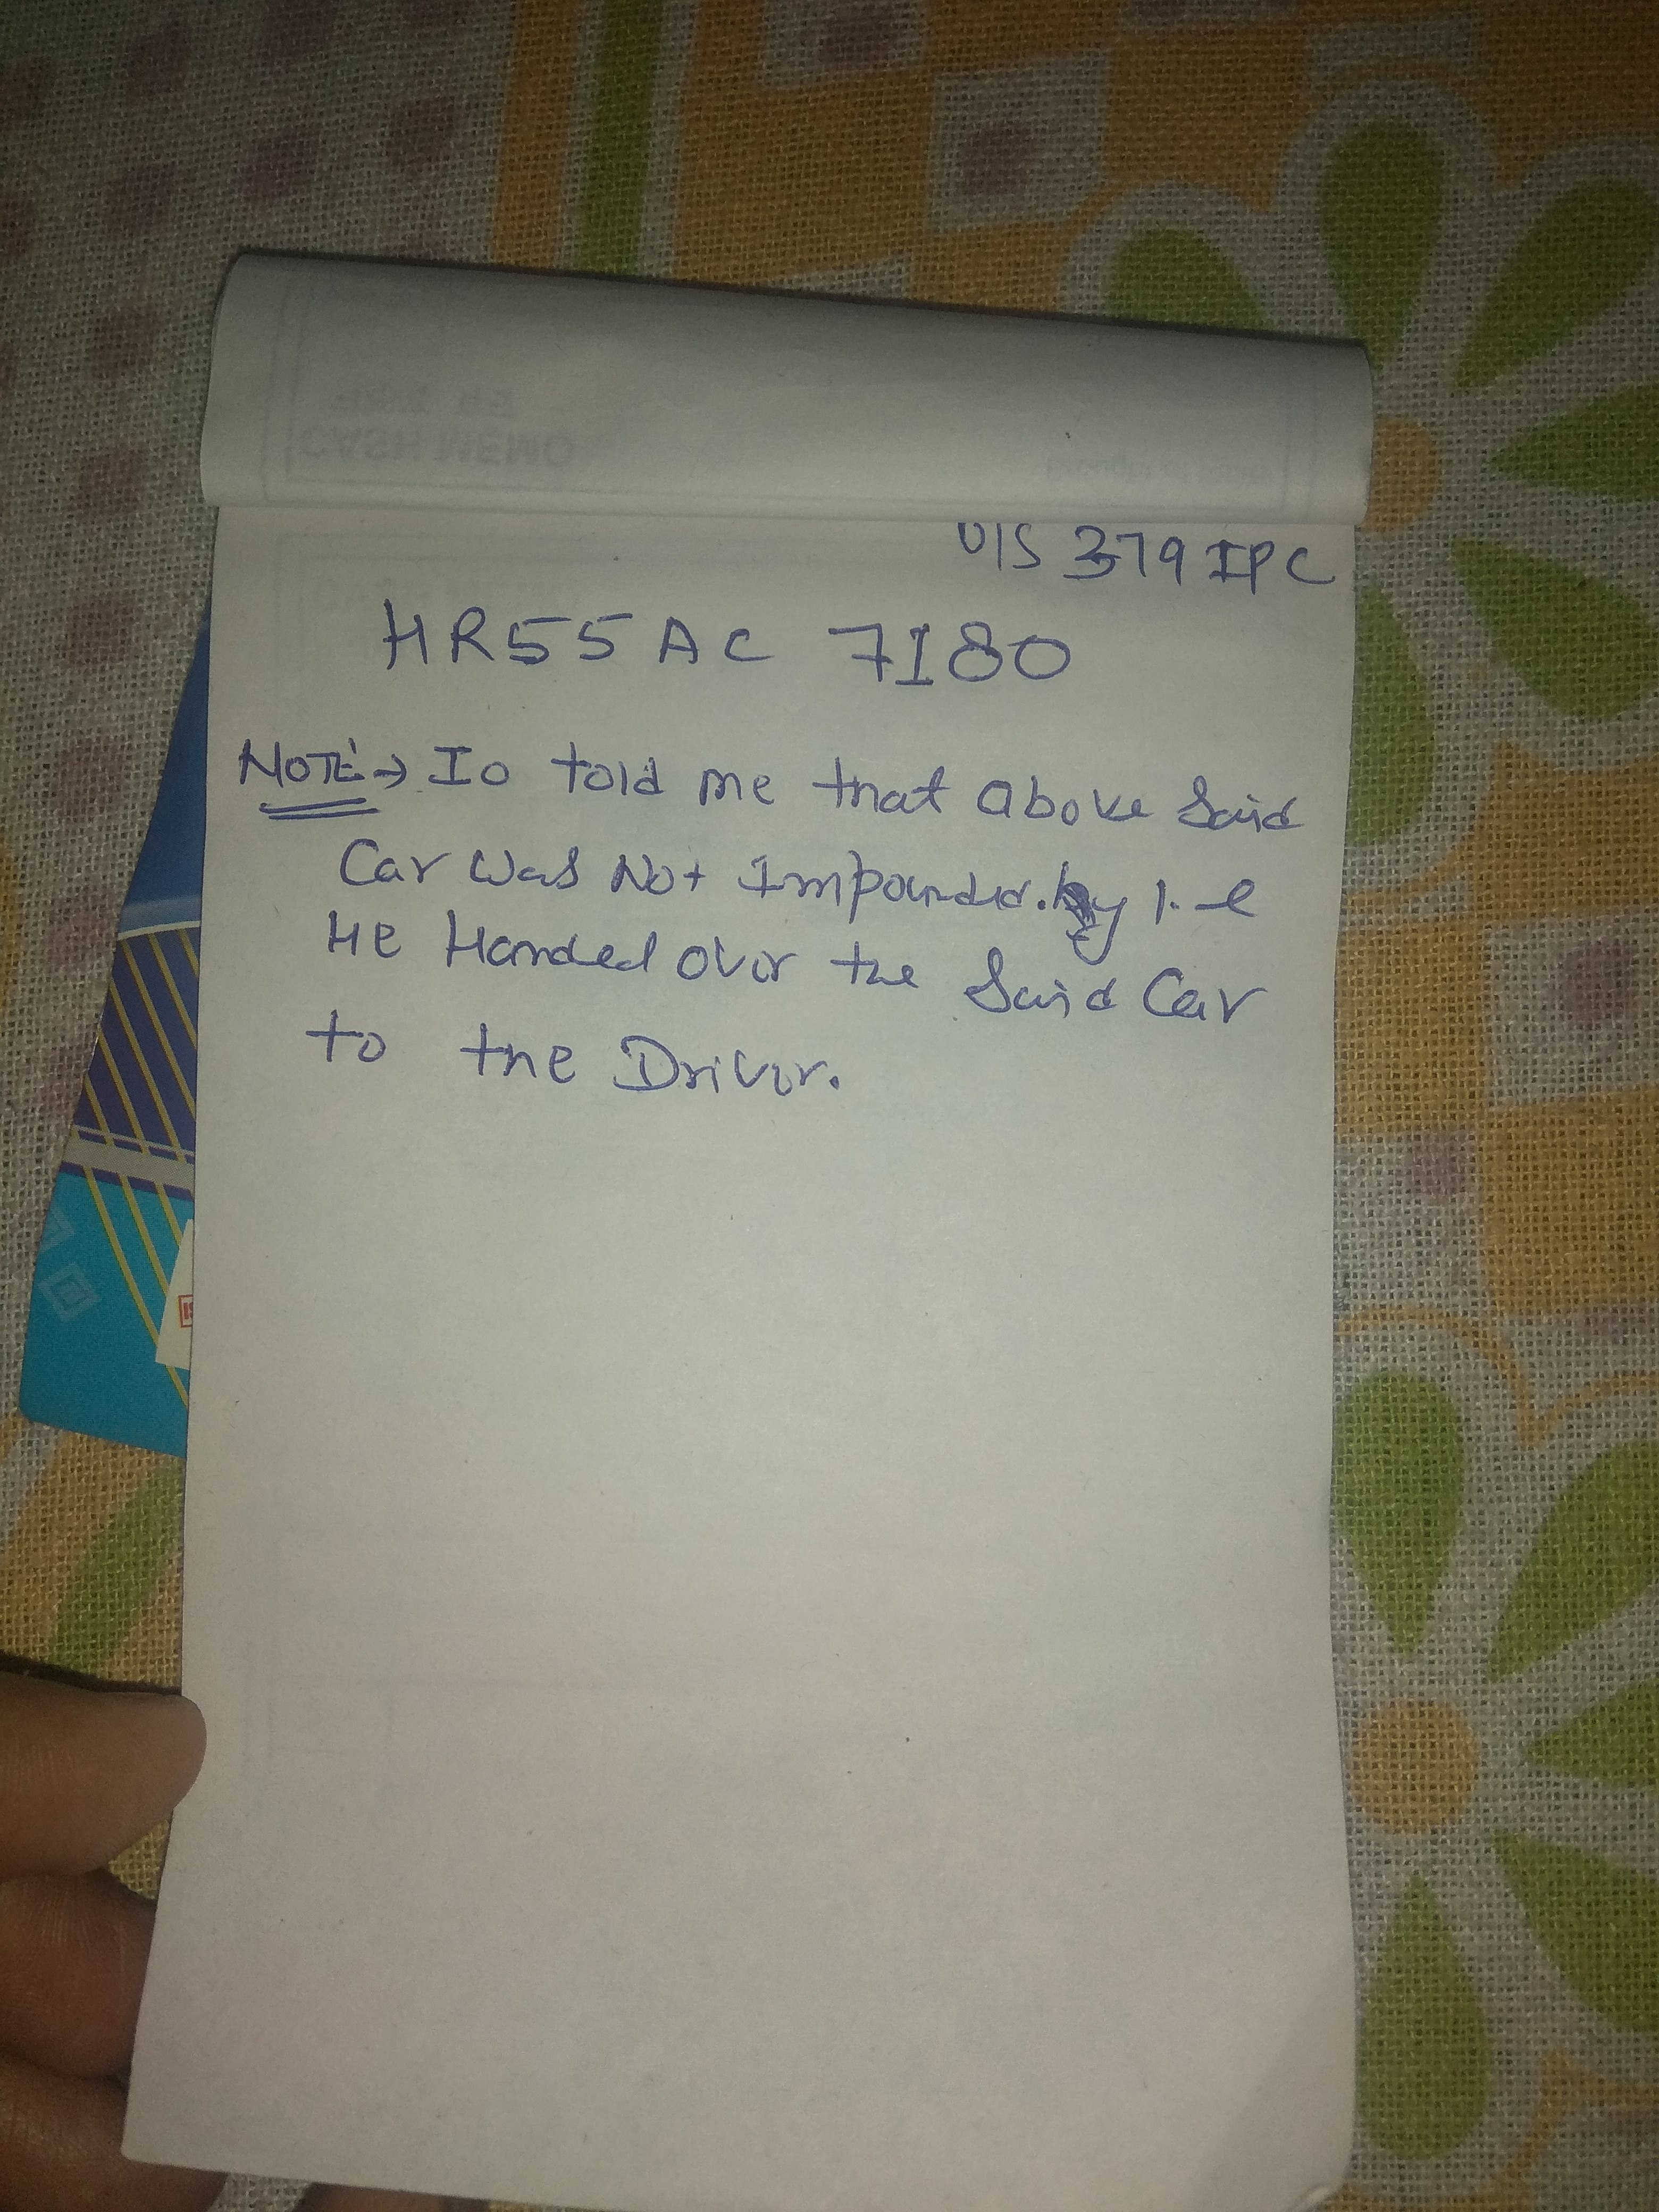 CASH MEMO
U/S 379 IPC
HR55 AC 7180
NOTE → IO told me that above Said
Car was Not Impounded. by i.e
He Handed over the Said Car
to the Driver.